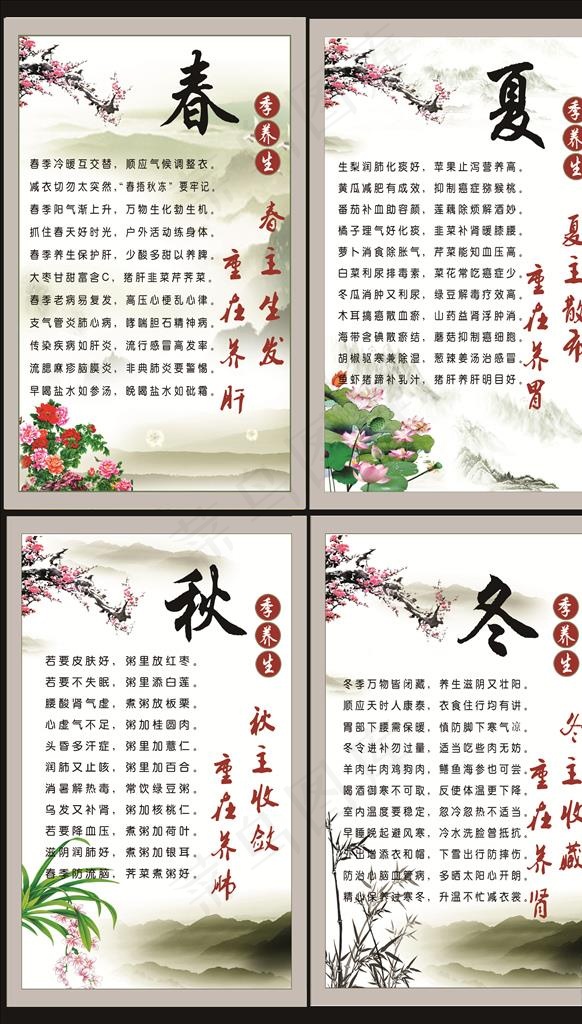 春
季养生
春季冷暖互交替，顺应气候调整衣。
减衣切勿太突然，“春捂秋冻”要牢记。
春季阳气渐上升，万物生化勃生机。
抓住春天好时光，户外活动练身体。
春季养生保护肝，少酸多甜以养脾。
大枣甘甜富含C，猪肝韭菜芹荠菜。
春季老病易复发，高压心梗乱心律。
支气管炎肺心病，哮喘胆石精神病。
传染疾病如肝炎，流行感冒高发率。
流腮麻疹脑膜炎，非典肺炎要警惕。
早喝盐水如参汤，晚喝盐水如砒霜。
春主生发
重在养肝
夏
季养生
生梨润肺化痰好，苹果止泻营养高。
黄瓜减肥有成效，抑制癌症猕猴桃。
番茄补血助容颜，莲藕除烦解酒妙。
橘子理气好化痰，韭菜补肾暖膝腰。
萝卜消食除胀气，芹菜能知血压高。
白菜利尿排毒素，菜花常吃癌症少。
冬瓜消肿又利尿，绿豆解毒疗效高。
木耳搞癌散血瘀，山药益肾浮肿消。
海带含碘散瘀结，蘑菇抑制癌细胞。
胡椒驱寒兼除湿，葱辣姜汤治感冒。
鱼虾猪蹄补乳汁，猪肝养肝明目好。
夏主散
重在养胃
秋
季养生
若要皮肤好，粥里放红枣。
若要不失眠，粥里添白莲。
腰酸肾气虚，煮粥放板栗。
心虚气不足，粥加桂圆肉。
头昏多汗症，粥里加薏仁。
润肺又止咳，粥里加百合。
消暑解热毒，常饮绿豆粥。
乌发又补肾，粥加核桃仁。
若要降血压，煮粥加荷叶。
滋阴润肺好，煮粥加银耳。
春季防流脑，荠菜煮粥好。
秋主收敛
重在养肺
冬
季养生
冬季万物皆闭藏，养生滋阴又壮阳。
顺应天时人康泰，衣食住行均有讲。
胃部下腰需保暖，慎防脚下寒气凉。
冬令进补勿过量，适当吃些肉无妨。
羊肉牛肉鸡狗肉，鳝鱼海参也可尝。
喝酒御寒不可取，反使体温更下降。
室内温度要稳定，忽冷忽热不适当。
早睡晚起避风寒，冷水洗脸普抵抗。
外出增添衣和帽，下雪出行防摔伤。
防治心脑血管病，多晒太阳心开朗。
精心保养过寒冬，升温不忙减衣裳。
冬主收藏
重在养肾